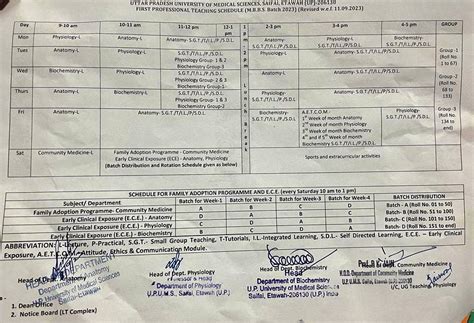 UTTAR PRADESH UNIVERSITY OF MEDICAL SCIENCES, SAIFAI, ETAWAH (UP)-206130
FIRST PROFESSIONAL TEACHING SCHEDULE (M.B.B.S. Batch 2023) (Revised w.e.f.11.09.2023)
Day 9-10 am 10-11 am 11-12 pm 12-1 pm 2-3 pm 3-4 pm 4-5 pm GROUP
Mon Physiology-L Anatomy-L Anatomy- S.G.T./T/I.L./P./S.D.L. Physiology
Tues Anatomy-L Physiology-L
S.G.T./T/I.L./P./S.D.L.
Physiology Group-1 & 2
Biochemistry Group-3
Group -1
(Roll No.
1 to 67)
Wed Biochemistry-L Physiology-L
S.G.T./T/I.L./P./S.D.L.
Physiology Group- 2 & 3
Biochemistry Group-1
Group -2
(Roll No.
68 to
133)
Thurs Anatomy-L Biochemistry-L
S.G.T./T/I.L./P./S.D.L.
Physiology Group- 1 & 3
Biochemistry Group-2
Fri Anatomy-L Anatomy- S.G.T./T/I.L./P./S.D.L.
A.E.T.C.O.M.-
1st Week of month Anatomy
2nd Week of month Physiology
3rd Week of month Biochemistry
Group -3
(Roll No.
134 to
end)
Sat Community Medicine-L
Family Adoption Programme - Community Medicine
Early Clinical Exposure (ECE) - Anatomy, Physiology
(Batch Distribution and Rotation Schedule given as below)
Sports and extracurricular activities
SCHEDULE FOR FAMILY ADOPTION PROGRAMME AND E.C.E. (every Saturday 10 am to 1 pm)
Subject/ Department Batch for Week-1 Batch for Week-2 Batch for Week-3 Batch for Week-4 BATCH DISTRIBUTION
Family Adoption Programme- Community Medicine A B C D Batch - A (Roll No. 01 to 50)
Early Clinical Exposure (E.C.E.) - Anatomy D A B C Batch- B (Roll No. 51 to 100)
Early Clinical Exposure (E.C.E.) - Physiology C D A B Batch- C (Roll No. 101 to 150)
Early Clinical Exposure (E.C.E.) - Biochemistry B C D A Batch- D (Roll No. 151 to end)
ABBREVIATION: L-Lecture, P-Practical, S.G.T.- Small Group Teaching, T-Tutorials, I.L-Integrated Learning, S.D.L.- Self Directed Learning, E.C.E. – Early
Exposure, A.E.T.C.O.M.-Attitude, Ethics & Communication Module.
HEAD
DEPARTMENT
Head of Dept. Anatomy
U.P. University of Medical Sciences
Saifai-Etawah
Department of Physiology
U.P.U.M.S., Saifai, Etawah (U.P.)
Head of Dept. Biochemistry
Head
Department of Biochemistry
U.P. University of Medical Sciences
Saifai, Etawah-206130 (U.P.) India
H.O.D. Department of Community Medicine
U.P.U.M.S., Saifai, Etawah
I/C, UG Teaching Physiology
1. Dean Office
2. Notice Board (LT Complex)